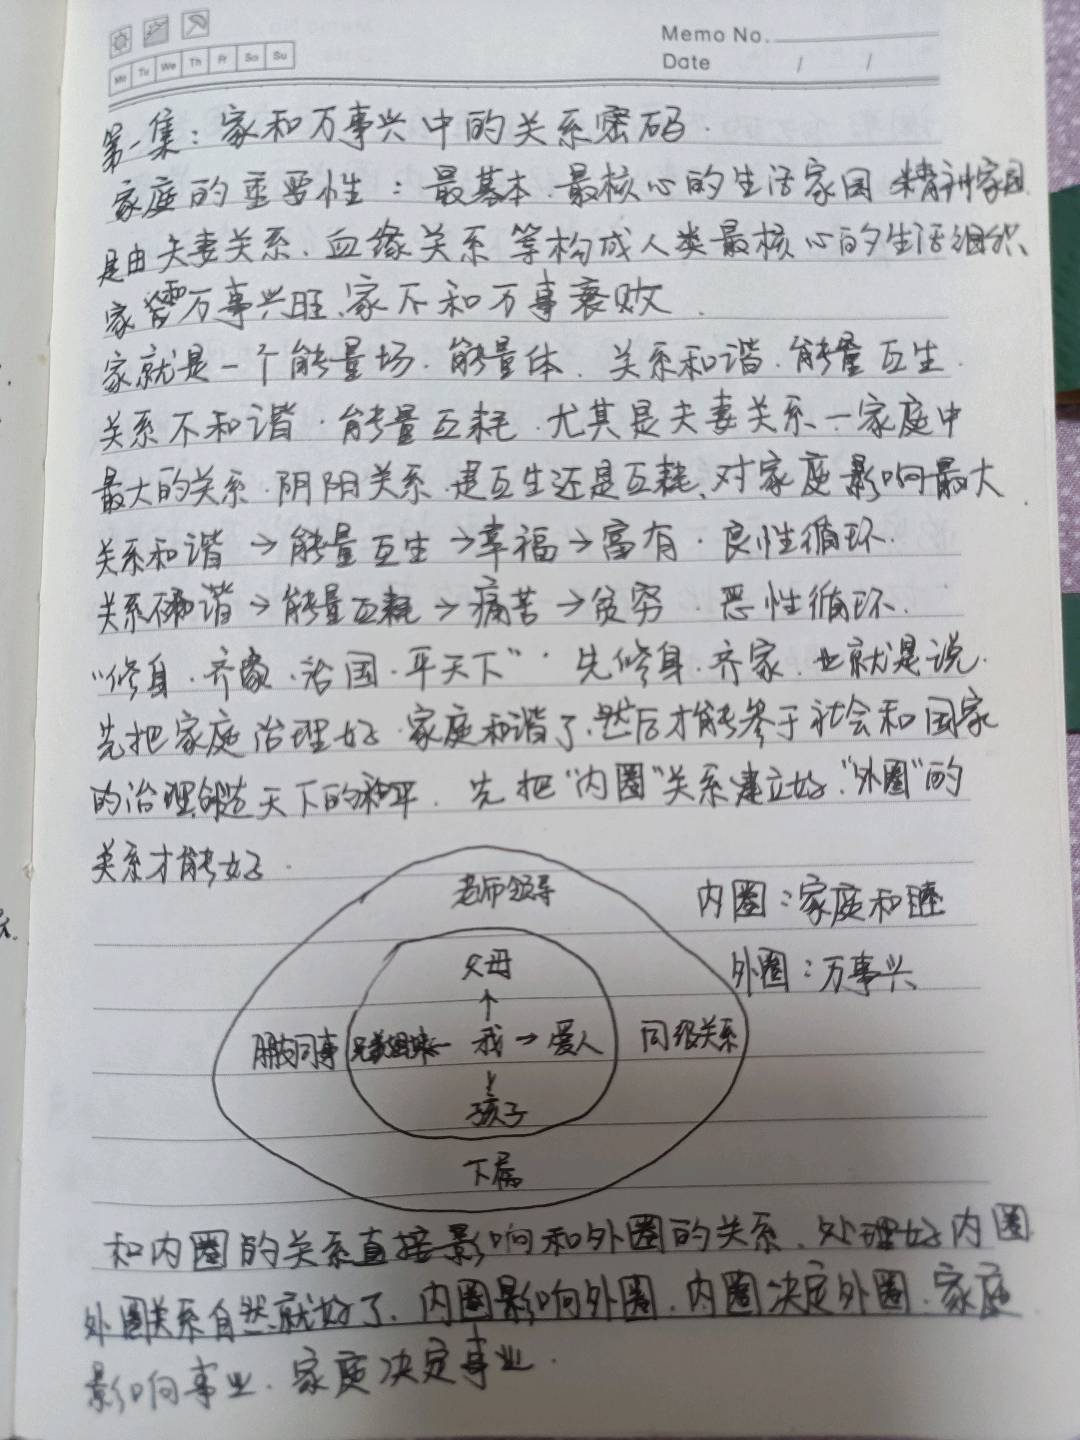 Memo No.
Date / /
Mo Tu We Th Fr Sa Su
第一集：家和万事兴中的关系密码.
家庭的重要性：最基本.最核心的生活家园 精神家园.
是由夫妻关系.血缘关系等构成人类最核心的生活组织、
家 万事兴旺.家不和万事衰败.
家就是一个能量场.能量体.关系和谐.能量互生.
关系不和谐.能量互耗.尤其是夫妻关系.一家庭中
最大的关系.阴阳关系.是互生还是互耗、对家庭影响最大
关系和谐→能量互生→幸福→富有.良性循环.
关系不和谐→能量互耗→痛苦→贫穷.恶性循环.
“修身.齐家.治国.平天下”.先修身.齐家.也就是说.
先把家庭治理好.家庭和谐了.然后才能参于社会和国家
的治理 天下的和平.先把“内圈”关系建立好.“外圈”的
关系才能好.
老师领导
内圈：家庭和睦
父母
外圈：万事兴
朋友同事 兄弟姐妹←我→爱人 同级关系
孩子
下属
和内圈的关系直接影响和外圈的关系.处理好内圈.
外圈关系自然就好了.内圈影响外圈.内圈决定外圈.家庭
影响事业.家庭决定事业.